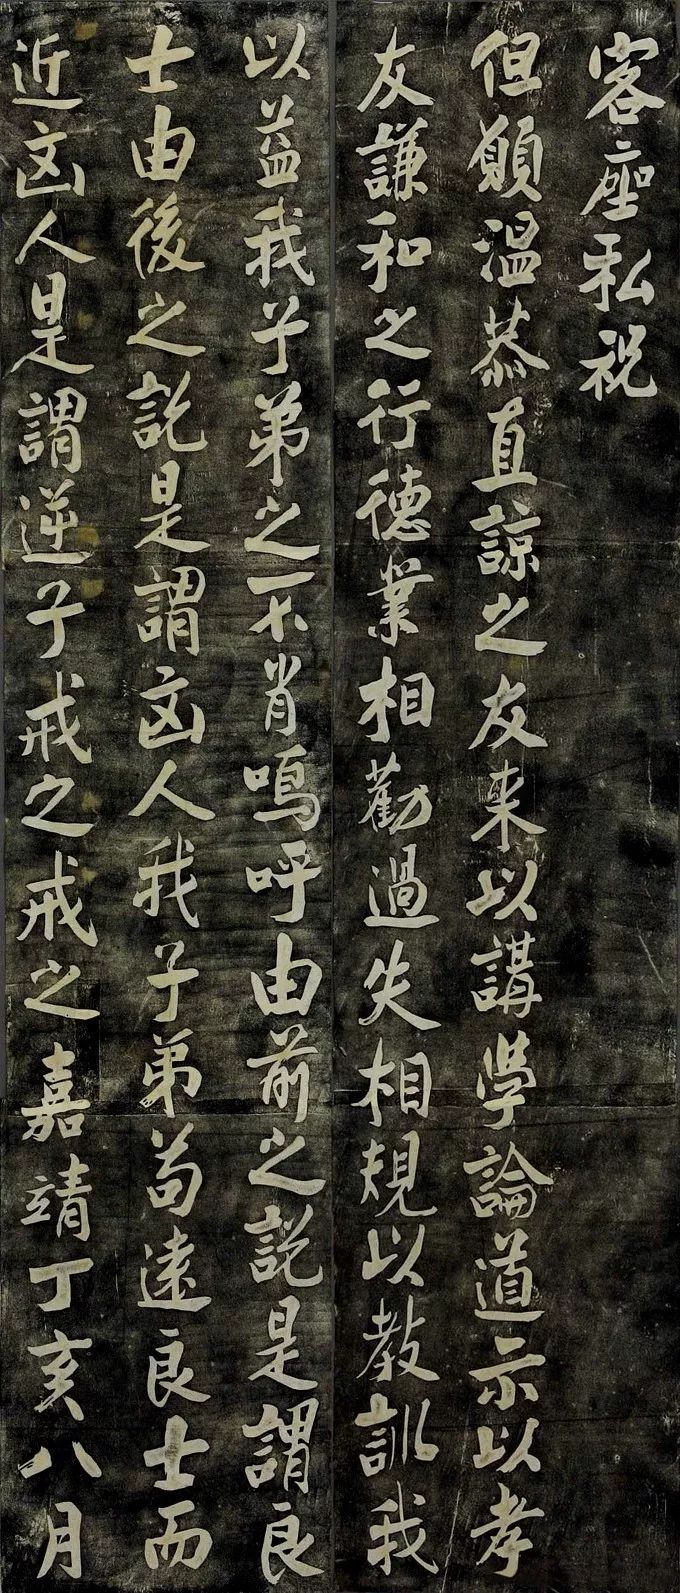 客座私祝
但願温恭直諒之友来以講学論道示以孝
友謙和之行德業相勸過失相規以教訓我
以益我子弟之不肖嗚呼由前之説是謂良
士由後之説是謂凶人我子弟苟遠良士而
近凶人是謂逆子戒之戒之嘉靖丁亥八月